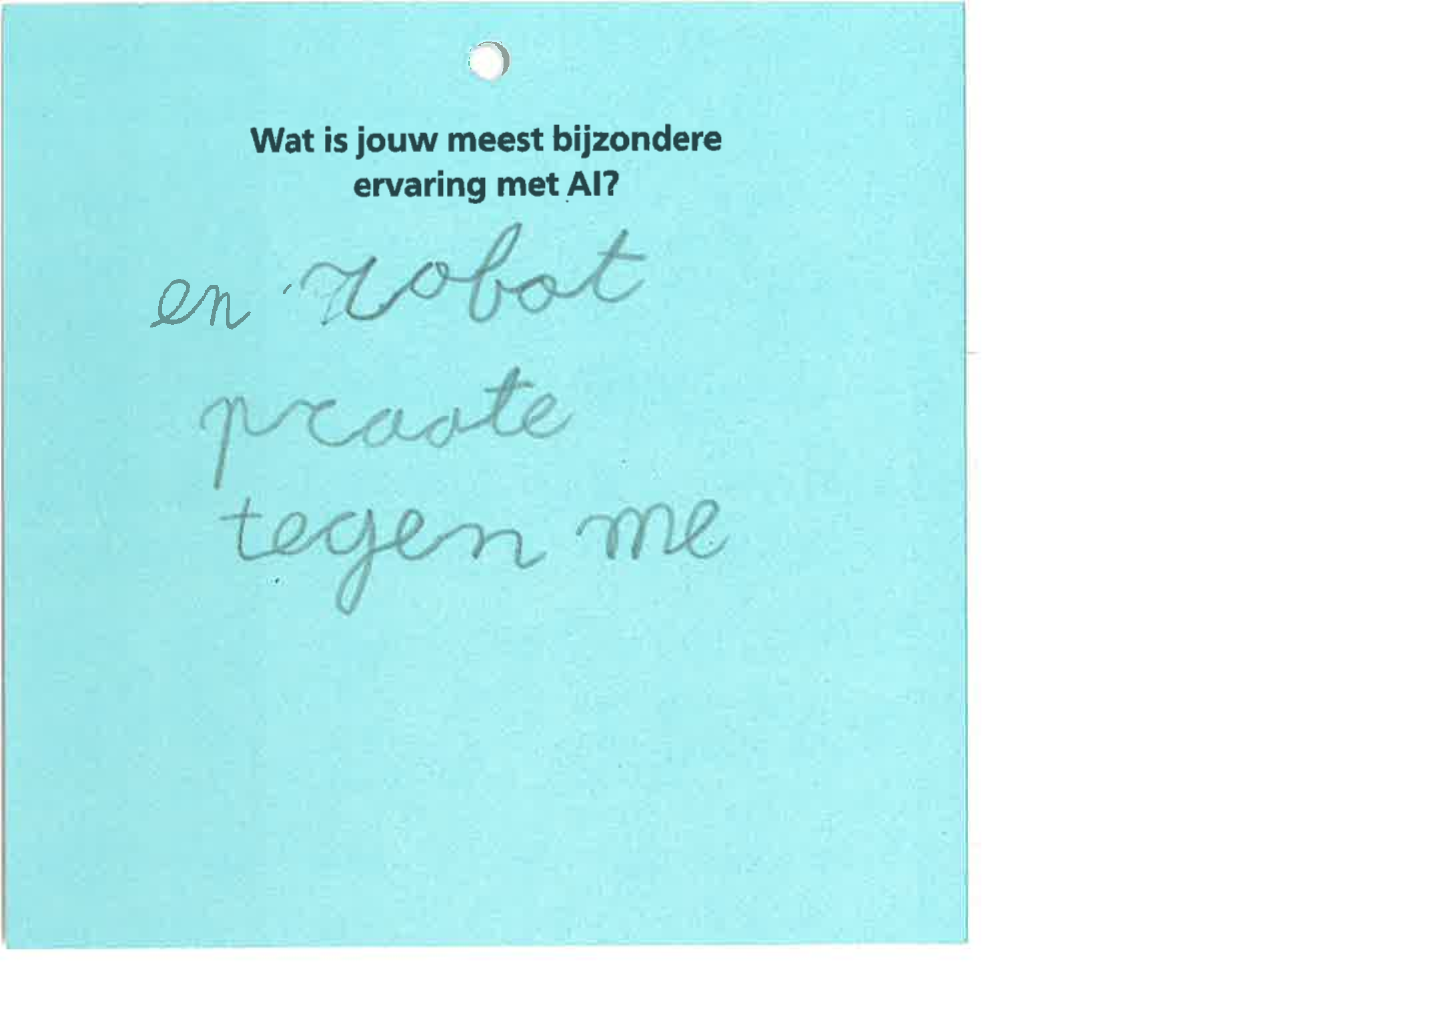 Wat is jouw meest bijzondere
ervaring met AI?
en robot
praate
tegen me